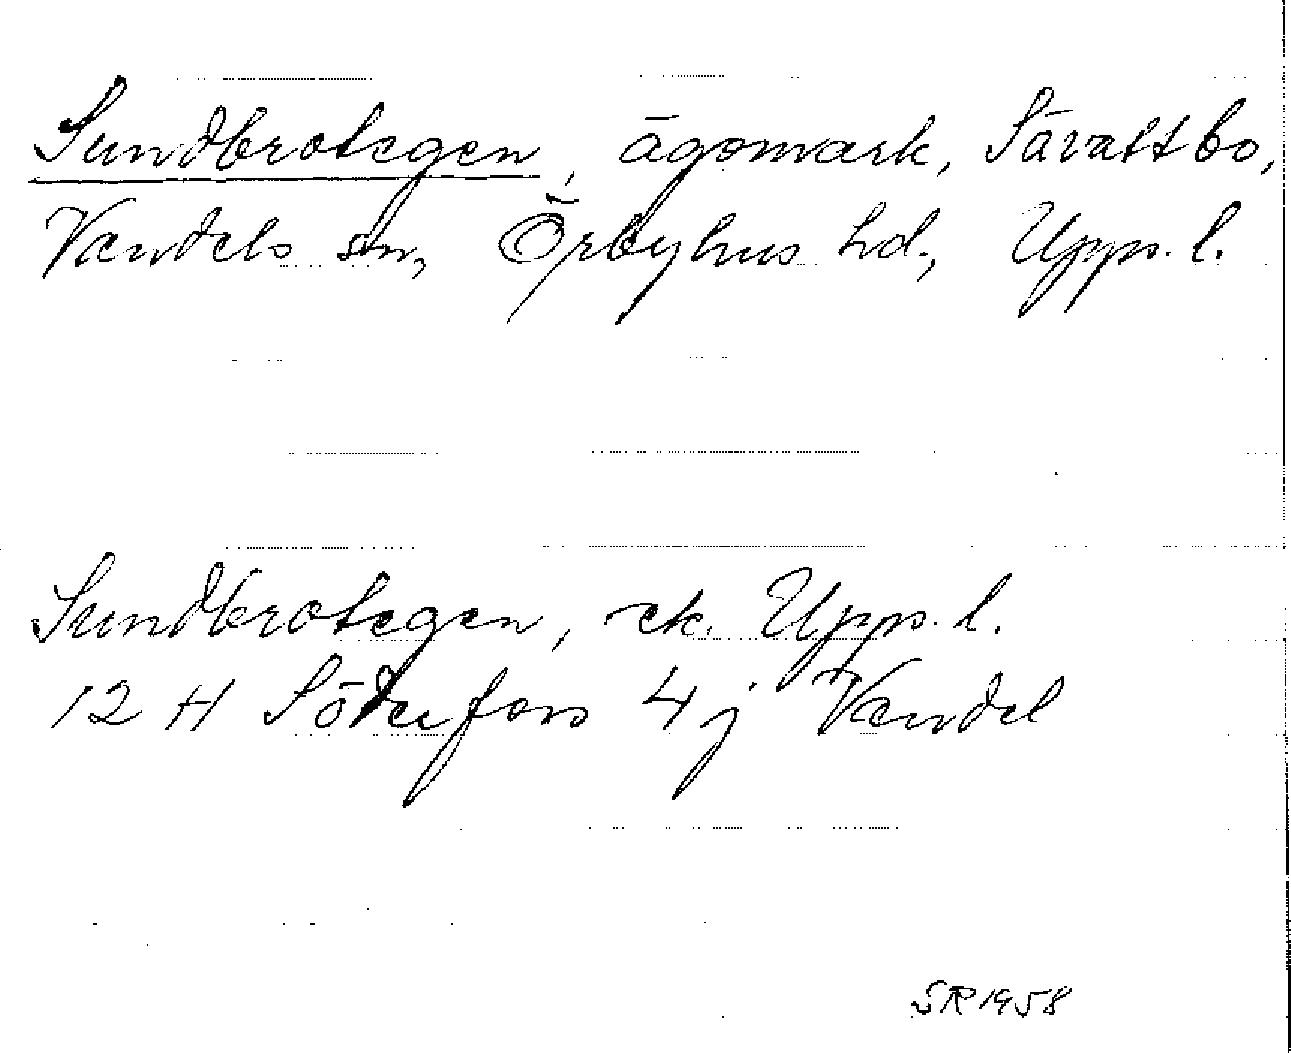 Sundbrotegen, ägomark, Sävastbo,
Vendels sn, Örbyhus hd., Uppl.
Sundbrotegen, ek. Uppl.
12 H Söderfors 4 j Vendel
SR 1958